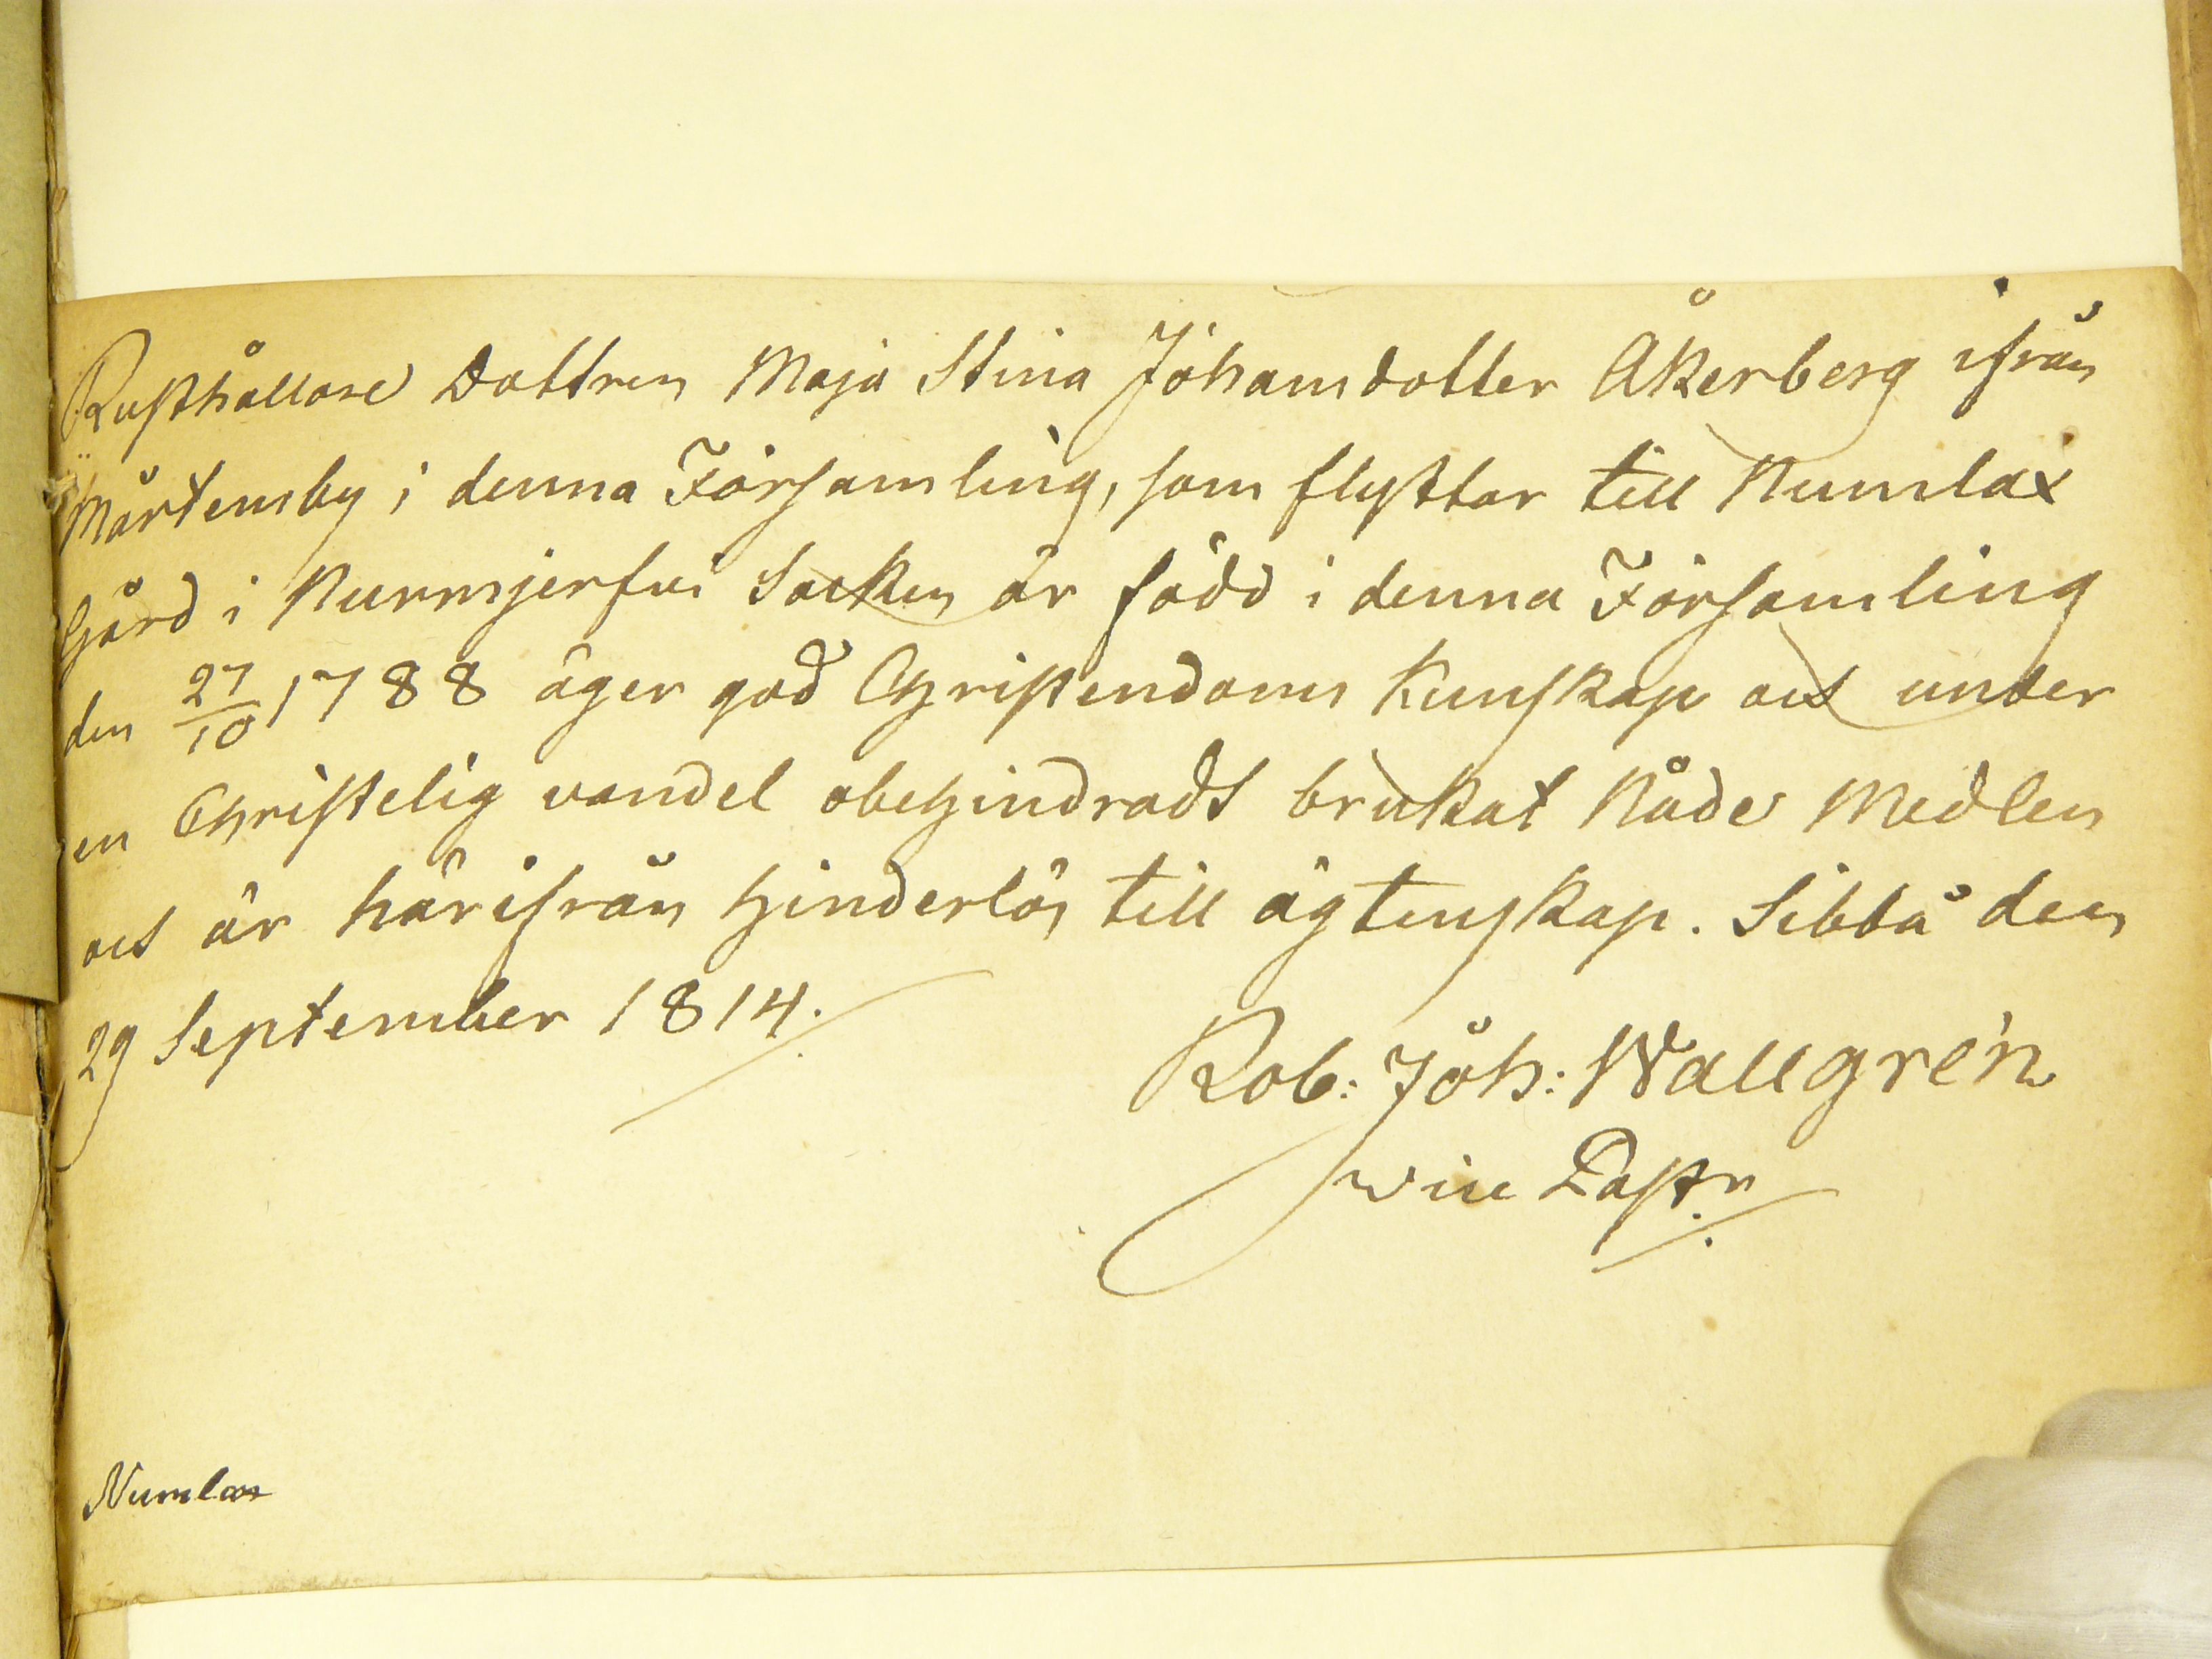 Rusthållare Dottren Maja Stina Johansdotter Åkerberg ifrån
Mårtensby i denna Församling, som flyttar till Numlax
Gård i Nurmjerfvi Socken är född i denna Församling
den 27/10 1788 äger god Christendoms Kunskap och under
en Christelig vandel obehindradt brukat Nåde Medlen
och är härifrån hinderlös till ägtenskap. Sibbå den
29 September 1814.
Rob: Joh: Wallgrén
vice Past:r
Numlax